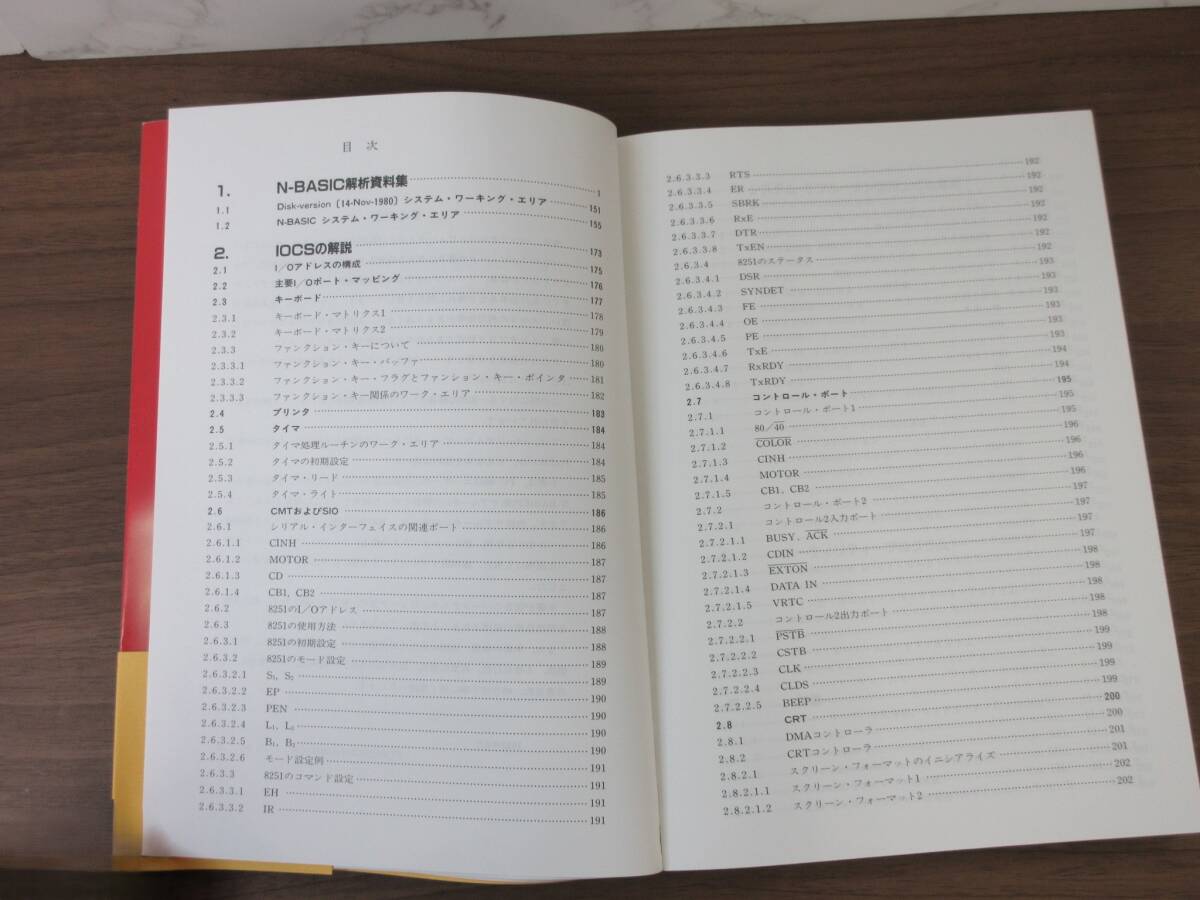 目 次
1. N-BASIC解析資料集 1
1.1 Disk-version〔14-Nov-1980〕システム・ワーキング・エリア 151
1.2 N-BASIC システム・ワーキング・エリア 155
2. IOCSの解説 173
2.1 I/Oアドレスの構成 175
2.2 主要I/Oポート・マッピング 176
2.3 キーボード 177
2.3.1 キーボード・マトリクス1 178
2.3.2 キーボード・マトリクス2 179
2.3.3 ファンクション・キーについて 180
2.3.3.1 ファンクション・キー・バッファ 180
2.3.3.2 ファンクション・キー・フラグとファンション・キー・ポインタ 181
2.3.3.3 ファンクション・キー関係のワーク・エリア 182
2.4 プリンタ 183
2.5 タイマ 184
2.5.1 タイマ処理ルーチンのワーク・エリア 184
2.5.2 タイマの初期設定 184
2.5.3 タイマ・リード 185
2.5.4 タイマ・ライト 185
2.6 CMTおよびSIO 186
2.6.1 シリアル・インターフェイスの関連ポート 186
2.6.1.1 CINH 186
2.6.1.2 MOTOR 187
2.6.1.3 CD 187
2.6.1.4 CB1, CB2 187
2.6.2 8251のI/Oアドレス 187
2.6.3 8251の使用方法 188
2.6.3.1 8251の初期設定 188
2.6.3.2 8251のモード設定 189
2.6.3.2.1 S₁, S₂ 189
2.6.3.2.2 EP 190
2.6.3.2.3 PEN 190
2.6.3.2.4 L₁, L₂ 190
2.6.3.2.5 B₁, B₂ 190
2.6.3.2.6 モード設定例 191
2.6.3.3 8251のコマンド設定 191
2.6.3.3.1 EH 191
2.6.3.3.2 IR 191
2.6.3.3.3 RTS 192
2.6.3.3.4 ER 192
2.6.3.3.5 SBRK 192
2.6.3.3.6 RxE 192
2.6.3.3.7 DTR 192
2.6.3.3.8 TxEN 192
2.6.3.4 8251のステータス 192
2.6.3.4.1 DSR 193
2.6.3.4.2 SYNDET 193
2.6.3.4.3 FE 193
2.6.3.4.4 OE 193
2.6.3.4.5 PE 193
2.6.3.4.6 TxE 193
2.6.3.4.7 RxRDY 194
2.6.3.4.8 TxRDY 194
2.7 コントロール・ポート 195
2.7.1 コントロール・ポート1 195
2.7.1.1 80/4̅0̅ 195
2.7.1.2 C̅O̅L̅O̅R̅ 196
2.7.1.3 CINH 196
2.7.1.4 MOTOR 196
2.7.1.5 CB1, CB2 196
2.7.2 コントロール・ポート2 197
2.7.2.1 コントロール2入力ポート 197
2.7.2.1.1 BUSY, A̅C̅K̅ 197
2.7.2.1.2 CDIN 197
2.7.2.1.3 E̅X̅T̅O̅N̅ 198
2.7.2.1.4 DATA IN 198
2.7.2.1.5 VRTC 198
2.7.2.2 コントロール2出力ポート 198
2.7.2.2.1 P̅S̅T̅B̅ 198
2.7.2.2.2 CSTB 199
2.7.2.2.3 CLK 199
2.7.2.2.4 CLDS 199
2.7.2.2.5 BEEP 199
2.8 CRT 200
2.8.1 DMAコントローラ 200
2.8.2 CRTコントローラ 201
2.8.2.1 スクリーン・フォーマットのイニシアライズ 201
2.8.2.1.1 スクリーン・フォーマット1 202
2.8.2.1.2 スクリーン・フォーマット2 202